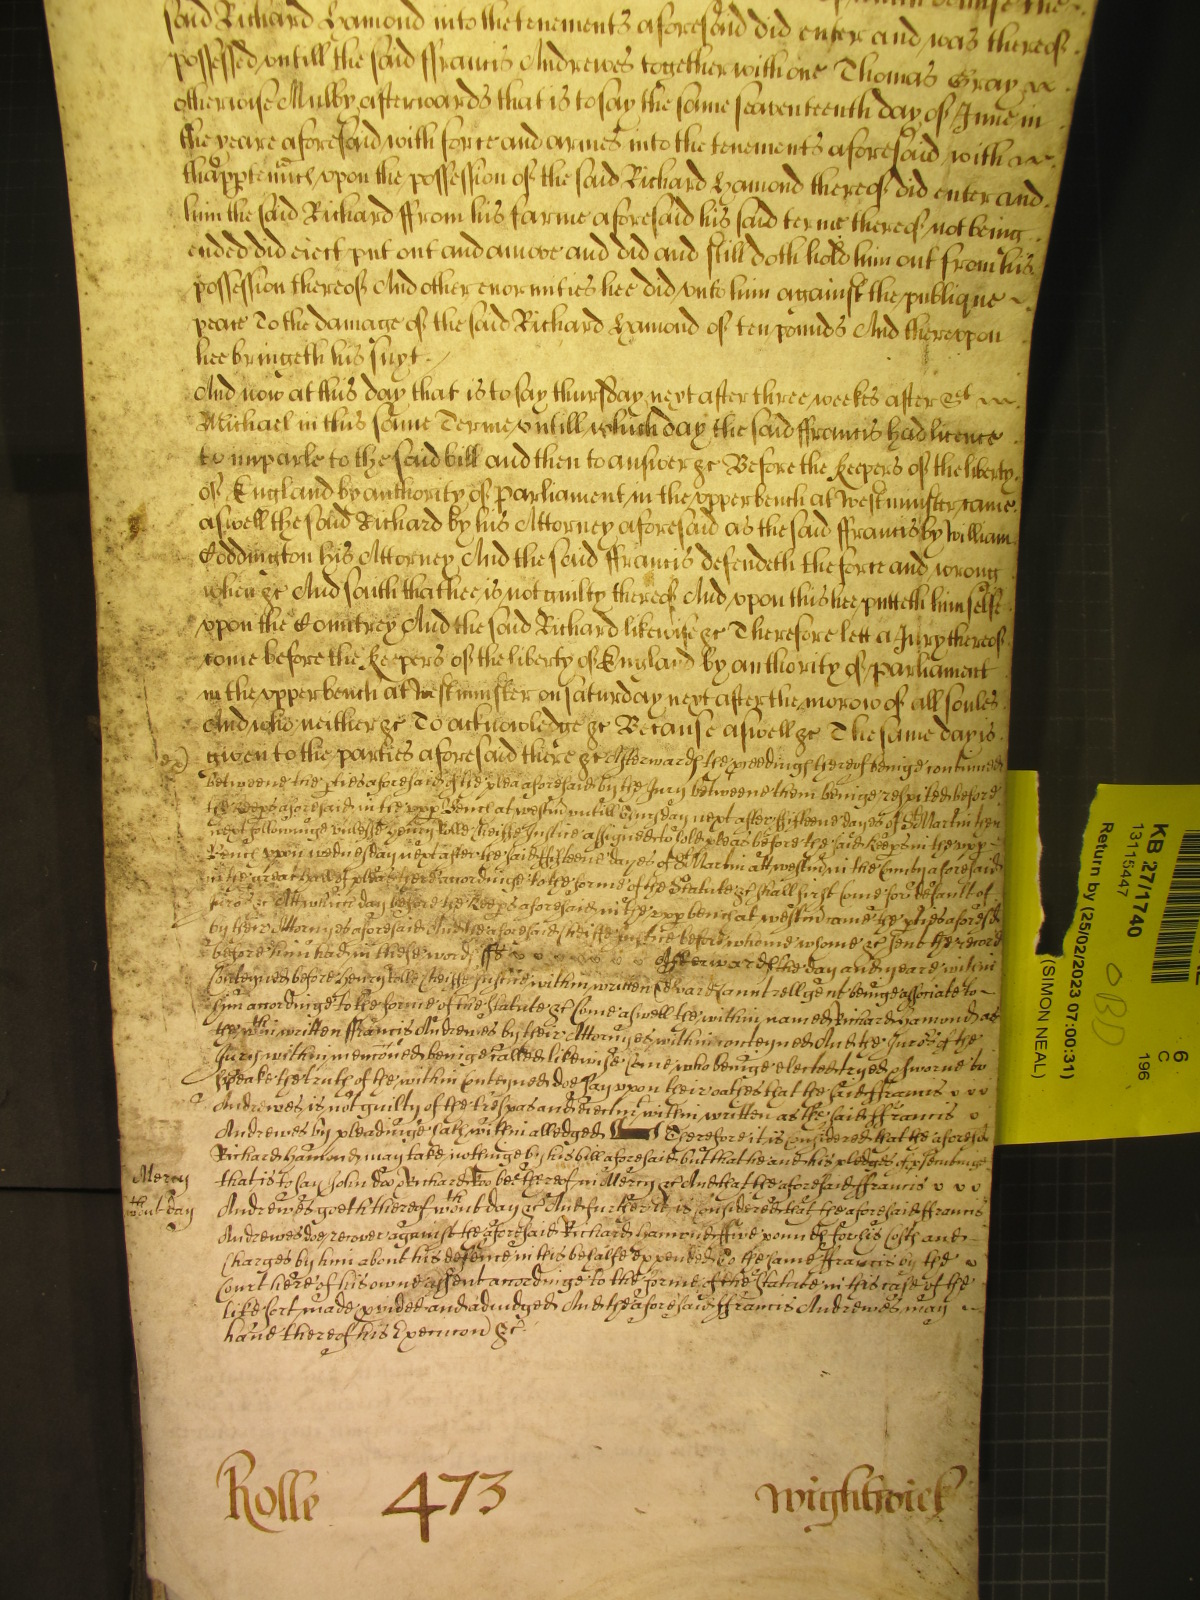 said Richard Hamond into the tenements aforesaid did enter and was thereof
possessed untill the said ffrancis Andrewes together with one Thomas Gray
otherwise Mulby afterwards that is to say the same seaventeenth day of June in
the yeare aforesaid with force and armes into the tenements aforesaid with
thapptennces upon the possession of the said Richard Hamond thereof did enter and
him the said Richard ffrom his farme aforesaid his said terme thereof not being
ended did eiect put out and amove and did and still doth hold him out from his
possession thereof And other enormities hee did unto him against the publique
peace To the damage of the said Richard Hamond of ten pounds And thereupon
hee bringeth his suyt
And now at this day that is to say thursday next after three weekes after St
Michael in this same Terme untill which day the said ffrancis had licence
to imparle to the said bill and then to answer &c Before the Keepers of the liberty
of England by authority of Parliament in the upper bench at Westminster came
aswell the said Richard by his Attorney aforesaid as the said ffrancis by William
Coddington his Attorney And the said ffrancis defendeth the force and wrong
when &c And saith that hee is not guilty thereof And upon this hee putteth himselfe
upon the Countrey And the said Richard likewise &c Therefore lett a Jury thereof
come before the Keepers of the liberty of England by authority of Parliament
in the upper bench at Westminster on Saturday next after the morow of all soules
And who neither &c To acknowledge &c Because aswell &c The same day is
given to the parties aforesaid there &c Afterwards the pceedings thereof beinge continued
betweene the pties aforesaid of the plea aforesaid by the Jury betweene them beinge respited before
the Keeps aforesaid in the upp Bench at Westm untill thursday next after fifteene dayes of St Martin then
next followinge unlesse Henry Rolle Cheiffe Justice assigned to hold pleas before the said Keeps in the upp
Bench upon wednesday next after the said fifteene dayes of St Martin att westm in the County aforesaid
in the great hall of pleas there accordinge to the forme of the Statute &c shall first come for default of
Juro &c Att which day before the Keeps aforesaid in the upp bench at westm came the pties aforesd
by their Attornyes aforesaid And the aforesaid Cheiffe Justice before whome &c sent the record
before him had in these words ss Afterwards the day and yeare within
conteyned before Henry Rolle Cheiffe Justice within written Edward gent beinge associate to
him accordinge to the forme of the Statute &c Come aswell the within named Richard Hamond as
the within written ffrancis Andrewes by their Attornyes within conteyned And the Juro of the
Jury within menconed beinge called likewise Come who beinge elected tryed & sworne to
speake the truth of the within conteyned doe say upon their oathes that the said ffrancis
Andrewes is not guilty of the trespas and eiectm within written as the said ffrancis
Andrewes by pleadinge hath within alledged Therefore it is considered that the aforesd
Richard Hamond may take nothinge by his bill aforesaid but that he and his pledges of psecutinge
that is to say John doo & Richard Roo be thereof in Mercy &c And that the aforesaid ffrancis
Mercy
Andrewes goeth thereof wthout day &c And further it is considered that the aforesaid ffrancis
wthout day
Andrewes doe recover against the aforesaid Richard Hamond ffive pounds for his Costs and
Charges by him about his defence in this behalfe expended to the same ffrancis by the
Court here of his owne assent accordinge to the forme of the Statute in this case of the
like sort made & pvided and adiudged And the aforesaid ffrancis Andrewes may
have thereof his Execucon &c
Rolle 473 Wightwick
KB 27/1740
13115447
Return by (25/02/2023 07:00:31)
(SIMON NEAL)
6
C
196